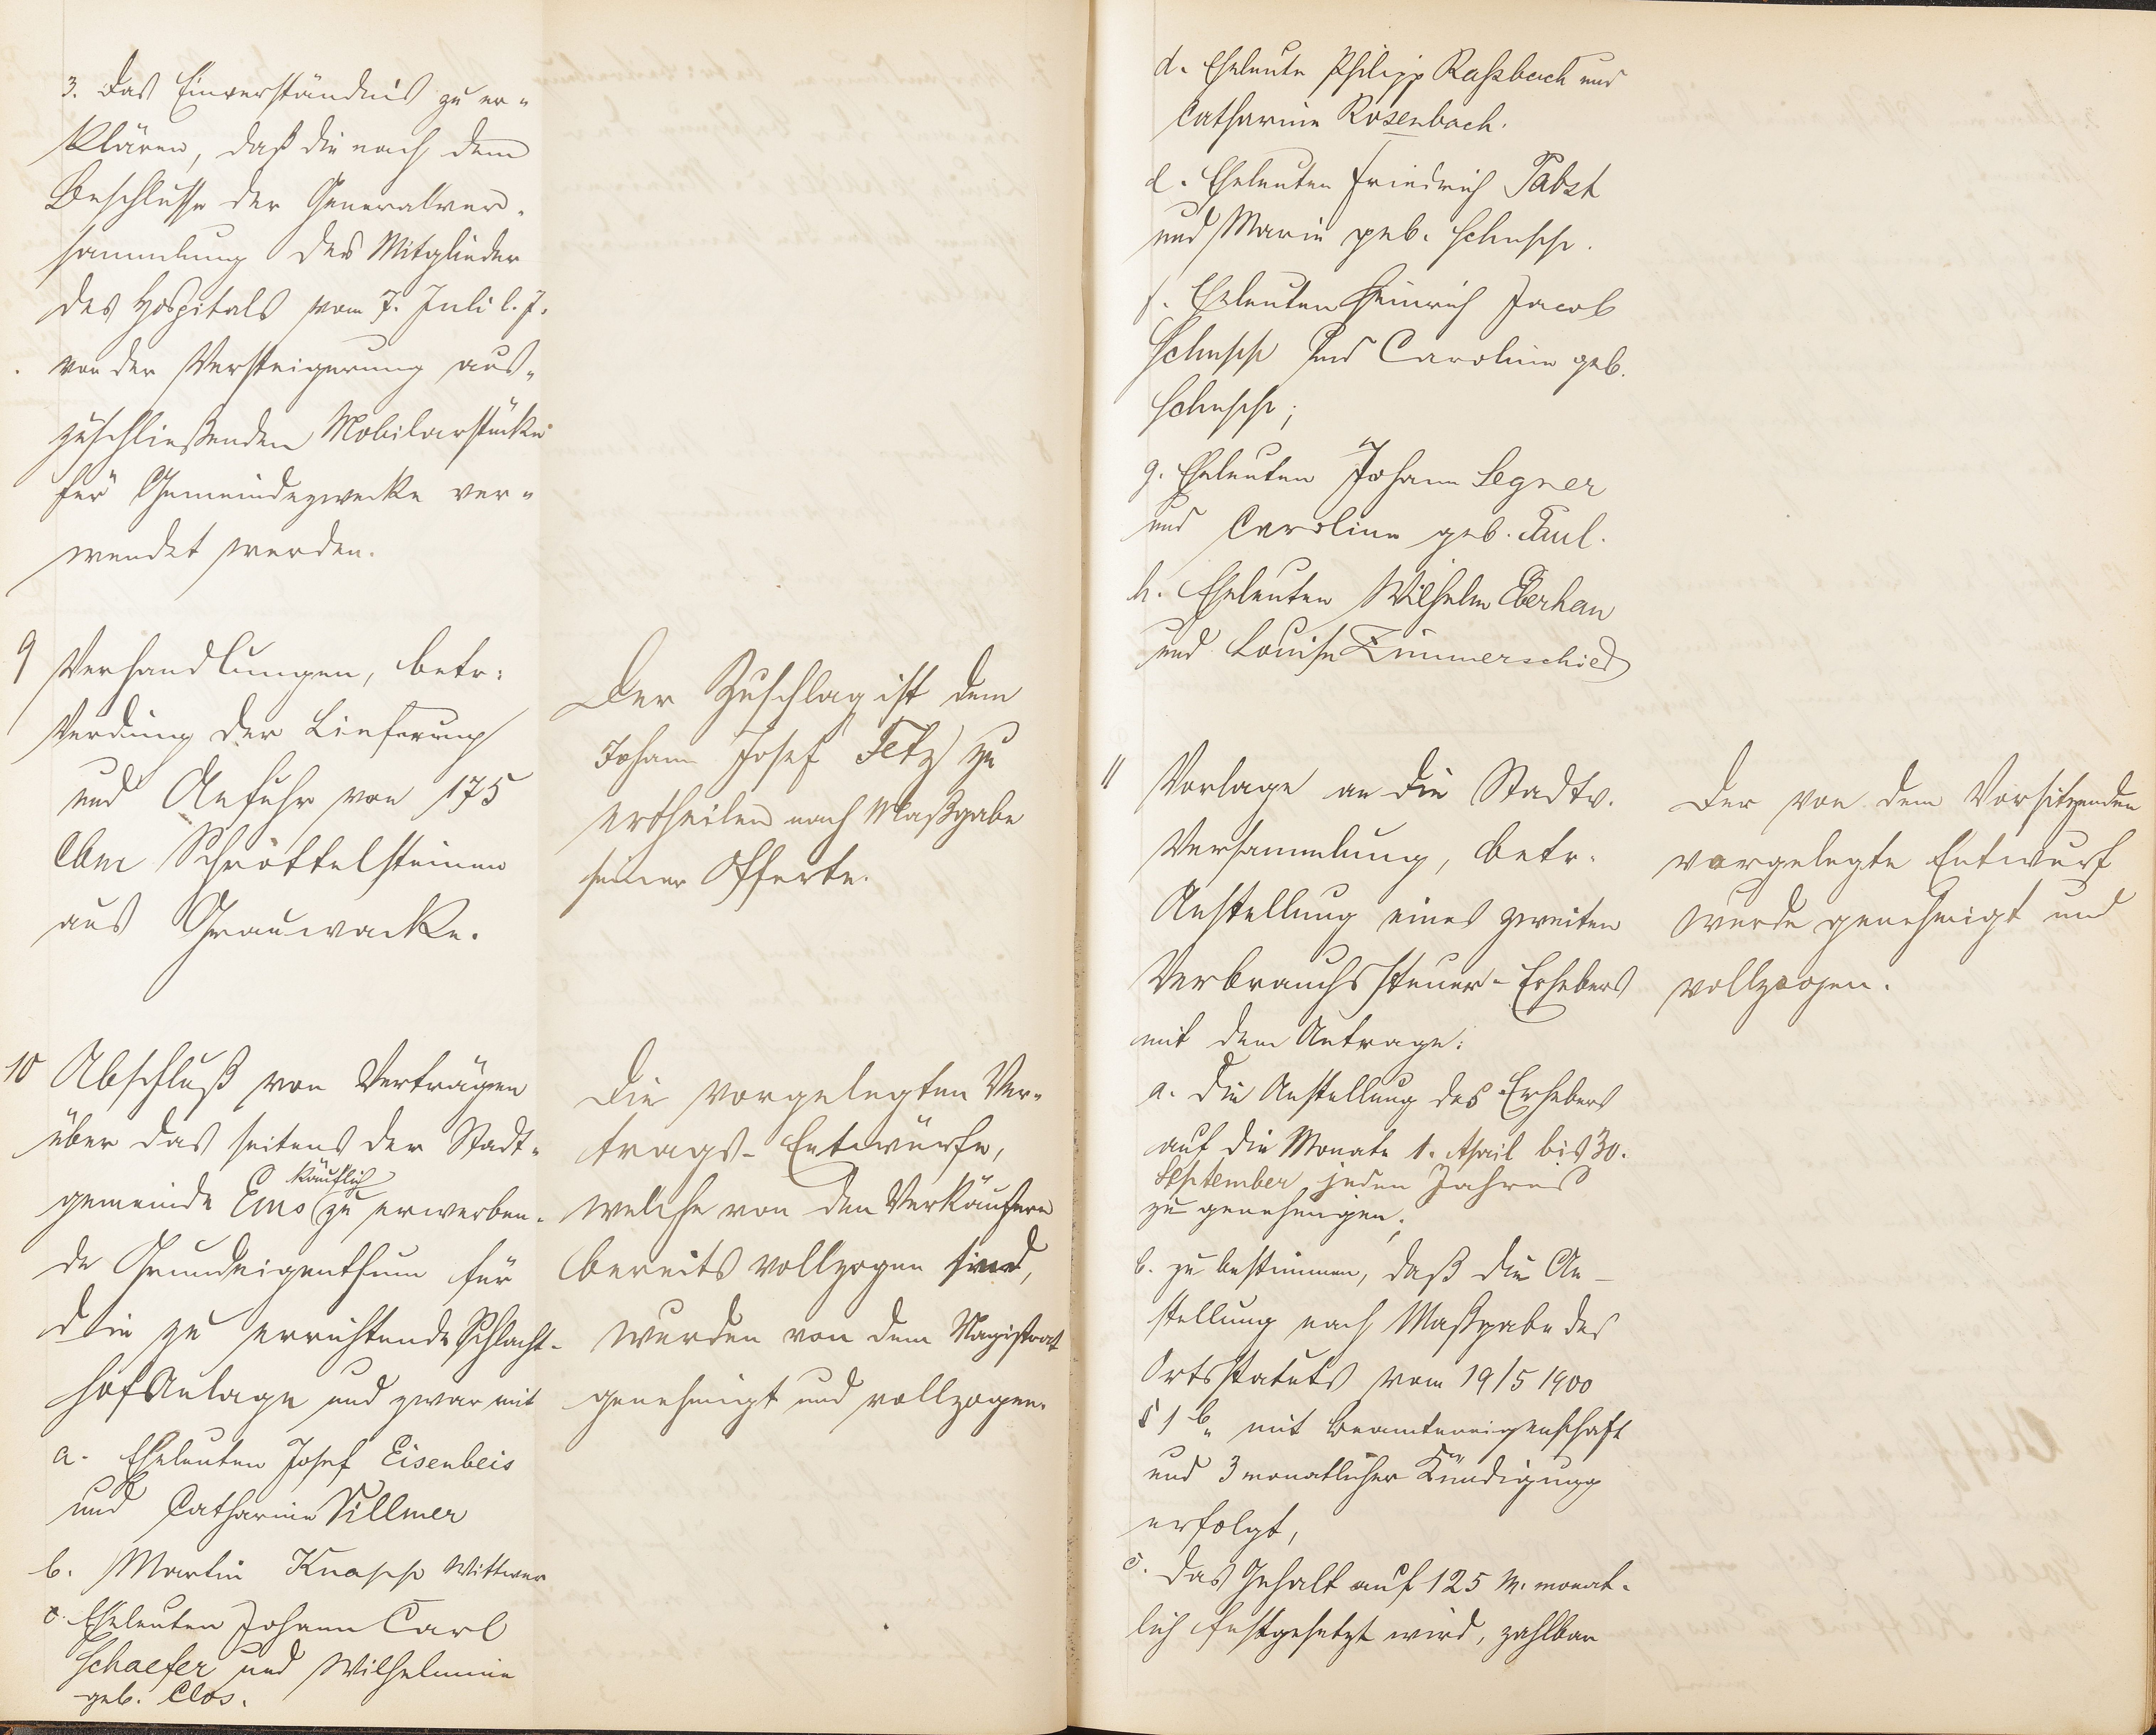 3. Das Einverständniß zu er-
klären, daß die nach dem
Beschlusse der Generalver-
sammlung der Mitglieder
des Hospitals vom 7. Juli l. J.
von der Versteigerung aus-
zuschließenden Mobilarstücke
für Gemeindezwecke ver-
wendet werden.
9 Verhandlungen, betr.
Verding der Lieferung
und Anfuhr von 175
Cbm Schrottelsteinen
aus Grauwacke.
Der Zuschlag ist dem
Johann Josef Fetz zu
ertheilen nach Maßgabe
seiner Offerte.
10 Abschluß von Verträgen
über das seitens der Stadt-
gemeinde Ems käuflich zu erwerben-
de Grundeigenthum für
die zu errichtende Schlacht-
hofanlage und zwar mit
a. Eheleuten Josef Eisenbeis
und Catharine Villmer
b. Martin Knapp Wittwer
c. Eheleuten Johann Carl
Schaefer und Wilhelmine
geb. Clos.
Die vorgelegten Ver-
trags-Entwürfe,
welche von den Verkäufern
bereits vollzogen sind,
wurden von dem Magistrat
genehmigt und vollzogen.
d. Eheleute Philipp Raßbach und
Catharine Rosenbach.
e. Eheleuten Friedrich Pabst
und Marie geb. Schupp.
f. Eheleuten Heinrich Jacob
Schupp und Caroline geb.
Schupp;
g. Eheleuten Johann Segner
und Caroline geb. Paul.
h. Eheleuten Wilhelm Eberhan
und Louise Zimmerschied
11 Vorlage an die Stadtv.
Versammlung, betr.
Anstellung eines zweiten
Verbrauchssteuer-Erhebers
mit dem Antrage:
a. die Anstellung des Erhebers
auf die Monate 1. April bis 30.
September jeden Jahres
zu genehmigen;
b. zu bestimmen, daß die An-
stellung nach Maßgabe des
Ortsstatuts vom 19/5 1900
§ 1 b, mit Beamteneigenschaft
und 3 monatlicher Kündigung
erfolgt,
c. das Gehalt auf 125 M. monat-
lich festgesetzt wird, zahlbar
Der von dem Vorsitzenden
vorgelegte Entwurf
wurde genehmigt und
vollzogen.